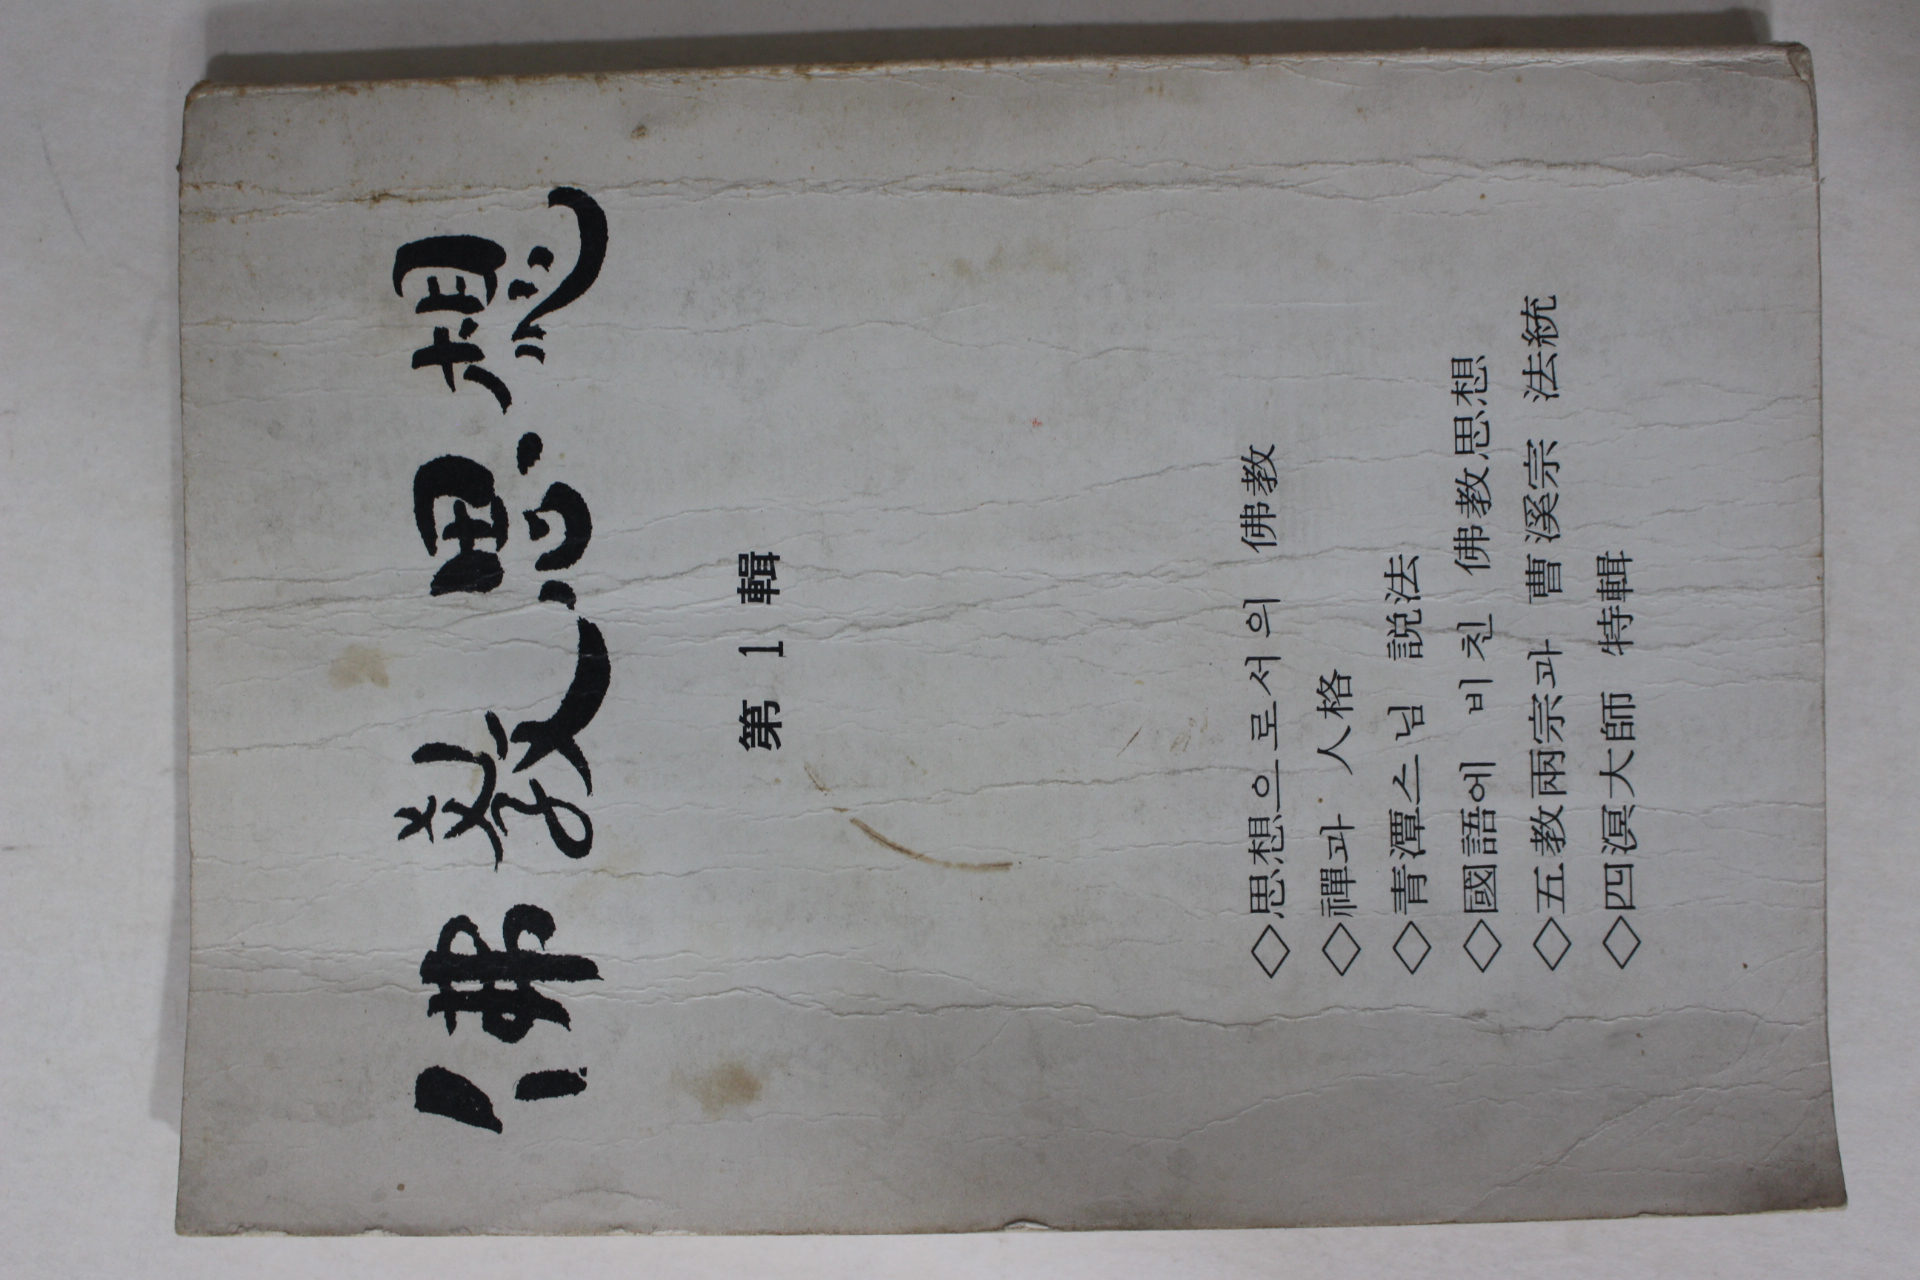 佛教思想
第 1 輯
◇思想으로서의 佛教
◇禪과 人格
◇青潭스님 説法
◇國語에 비친 佛教思想
◇五教兩宗과 曹溪宗 法統
◇四溟大師 特輯